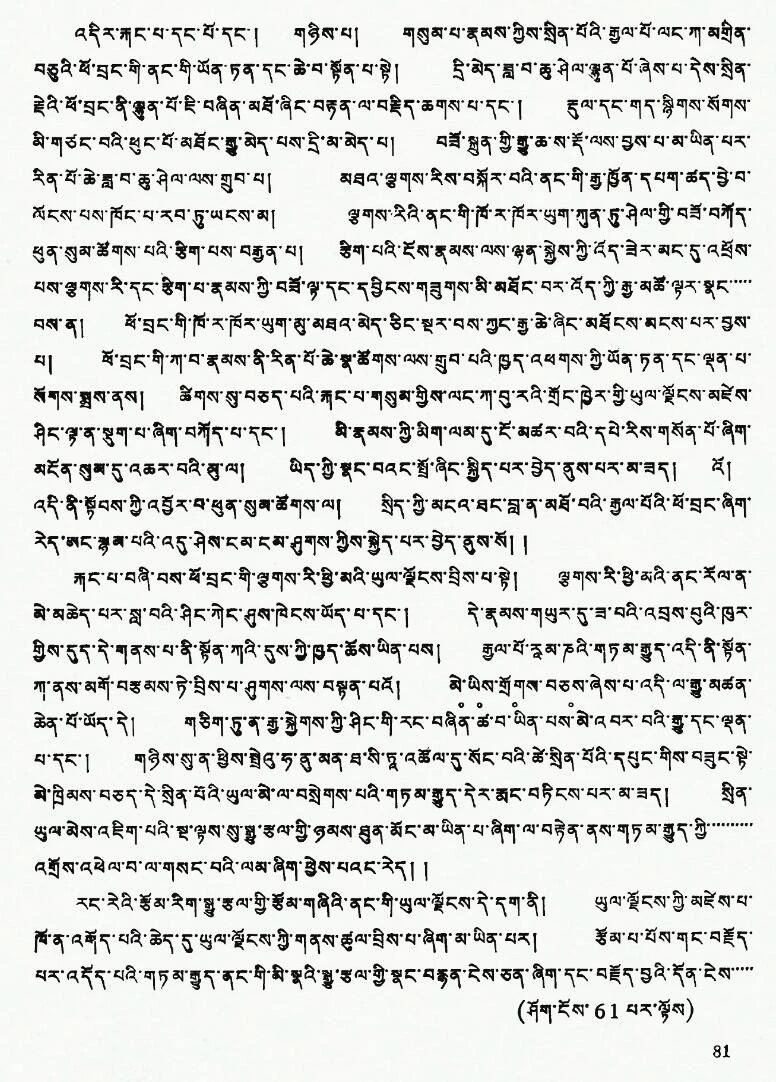 འདིར་རྐང་པ་དང་པོ་དང་། གཉིས་པ། གསུམ་པ་རྣམས་ཀྱིས་སྲིན་པོའི་རྒྱལ་པོ་ལང་ཀ་མགྲིན་
བཅུའི་ཕོ་བྲང་གི་ནང་གི་ཡོན་ཏན་དང་ཆེ་བ་སྟོན་པ་སྟེ། དྲི་མེད་ཟླ་བ་ཆུ་ཤེལ་ལྷུན་པོ་ཞེས་པ་དེས་སྲིན་
རྗེའི་ཕོ་བྲང་ནི་ལྷུན་པོ་ཇི་བཞིན་མཐོ་ཞིང་བརྟན་ལ་བརྗིད་ཆགས་པ་དང་། རྡུལ་དང་གད་སྙིགས་སོགས་
མི་གཙང་བའི་ཕུང་པོ་མཐོང་རྒྱུ་མེད་པས་དྲི་མ་མེད་པ། བཟོ་སྐྲུན་གྱི་རྒྱུ་ཆ་ས་རྡོ་ལས་བྱས་པ་མ་ཡིན་པར་
རིན་པོ་ཆེ་ཟླ་བ་ཆུ་ཤེལ་ལས་གྲུབ་པ། མཐའ་ལྕགས་རིས་བསྐོར་བའི་ནང་གི་རྒྱ་ཁྱོན་དཔག་ཚད་བྱེ་བ་
ལོངས་པས་ཁོང་པ་རབ་ཏུ་ཡངས་མ། ལྕགས་རིའི་ནང་གི་ཁོ་ར་ཁོར་ཡུག་ཀུན་ཏུ་ཤེལ་གྱི་བཟོ་བཀོད་
ཕུན་སུམ་ཚོགས་པའི་རྩིག་པས་བརྒྱན་པ། རྩིག་པའི་ངོས་རྣམས་ལས་ལྷན་སྐྱེས་ཀྱི་འོད་ཟེར་མང་དུ་འཕྲོས་
པས་ལྕགས་རི་དང་རྩིག་པ་རྣམས་ཀྱི་བཟོ་ལྟ་དང་དབྱིངས་གཟུགས་མི་མཐོང་བར་འོད་ཀྱི་རྒྱ་མཚོ་ལྟར་སྣང་.....
བས་ན། ཕོ་བྲང་གི་ཁོ་ར་ཁོར་ཡུག་མུ་མཐའ་མེད་ཅིང་སྔར་བས་ཀྱང་རྒྱ་ཆེ་ཞིང་མཐོངས་མངས་པར་བྱས་
པ། ཕོ་བྲང་གི་ཀ་བ་རྣམས་ནི་རིན་པོ་ཆེ་སྣ་ཚོགས་ལས་གྲུབ་པའི་ཁྱད་འཕགས་ཀྱི་ཡོན་ཏན་དང་ལྡན་པ་
སོགས་སྨྲས་ནས། ཚིགས་སུ་བཅད་པའི་རྐང་པ་གསུམ་གྱིས་ལང་ཀ་བུ་རའི་གྲོང་ཁྱེར་གྱི་ཡུལ་ལྗོངས་མཛེས་
ཤིང་ལྟ་ན་སྡུག་པ་ཞིག་བཀོད་པ་དང་། མི་རྣམས་ཀྱི་མིག་ལམ་དུ་ངོ་མཚར་བའི་དཔེ་རིས་གསོན་པོ་ཞིག་
མངོན་སུམ་དུ་འཆར་བའི་མུ་ལ། ཡིད་ཀྱི་སྣང་བའང་སྤྲོ་ཞིང་སྐྱིད་པར་བྱེད་ནུས་པར་མ་ཟད། འོ།
འདི་ནི་སྟོབས་ཀྱི་འབྱོར་བ་ཕུན་སུམ་ཚོགས་ལ། སྲིད་ཀྱི་མངའ་ཐང་བླ་ན་མཐོ་བའི་རྒྱལ་པོའི་ཕོ་བྲང་ཞིག་
རེད་ཨང་སྙམ་པའི་འདུ་ཤེས་ངམ་ངམ་ཤུགས་ཀྱིས་སྐྱེད་པར་བྱེད་ནུས་སོ། །
རྐང་པ་བཞི་བས་ཕོ་བྲང་གི་ལྕགས་རི་ཕྱི་མའི་ཡུལ་ལྗོངས་བྲིས་པ་སྟེ། ལྕགས་རི་ཕྱི་མའི་ནང་རོལ་ན་
མེ་མཆེད་པར་སླ་བའི་ཤིང་ཀེང་ཤུས་ཁེངས་ཡོད་པ་དང་། དེ་རྣམས་གཡུར་དུ་ཟ་བའི་འབྲས་བུའི་ཁུར་
གྱིས་དུད་དེ་གནས་པ་ནི་སྟོན་ཀའི་དུས་ཀྱི་ཁྱད་ཆོས་ཡིན་པས། རྒྱལ་པོ་རཱམ་ཎའི་གཏམ་རྒྱུད་འདི་ནི་སྟོན་
ཀ་ནས་མགོ་བརྩམས་ཏེ་བྲིས་པ་ཤུགས་ལས་བསྟན་པའོ། མེ་ཡིས་གྲོགས་བཅས་ཞེས་པ་འདི་ལ་རྒྱུ་མཚན་
ཆེན་པོ་ཡོད་དེ། གཅིག་ཏུ་ན་རྒྱ་སྐྱེགས་ཀྱི་ཤིང་གི་རང་བཞིན་ཚ་བ་ཡིན་པས་མེ་འབར་བའི་རྒྱུ་དང་ལྡན་
པ་དང་། གཉིས་སུ་ན་ཕྱིས་སྤྲེའུ་ཧ་ནུ་མན་ཐ་སི་ཏཱ་འཚོལ་དུ་སོང་བའི་ཚེ་སྲིན་པོའི་དཔུང་གིས་བཟུང་སྟེ་
མེ་ཁྲིམས་བཅད་དེ་སྲིན་པོའི་ཡུལ་མེ་ལ་བསྲེགས་པའི་གཏམ་རྒྱུད་དེར་རྨང་བཏིངས་པར་མ་ཟད། སྲིན་
ཡུལ་མེས་འཇིག་པའི་སྔ་ལྟས་སུ་སྒྱུ་རྩལ་གྱི་ཉམས་ཐུན་མོང་མ་ཡིན་པ་ཞིག་ལ་བརྟེན་ནས་གཏམ་རྒྱུད་ཀྱི་.........
འགྲོས་འཕེལ་བ་ལ་གསང་བའི་ལམ་ཞིག་ཕྱེས་པའང་རེད། །
རང་རེའི་རྩོམ་རིག་སྒྱུ་རྩལ་གྱི་རྩོམ་གཞིའི་ནང་གི་ཡུལ་ལྗོངས་དེ་དག་ནི། ཡུལ་ལྗོངས་ཀྱི་མཛེས་པ་
ཁོ་ན་འགོད་པའི་ཆེད་དུ་ཡུལ་ལྗོངས་ཀྱི་གནས་ཚུལ་བྲིས་པ་ཞིག་མ་ཡིན་པར། རྩོམ་པ་པོས་གང་བརྗོད་
པར་འདོད་པའི་གཏམ་རྒྱུད་ནང་གི་མི་སྣའི་སྒྱུ་རྩལ་གྱི་སྣང་བརྙན་ངེས་ཅན་ཞིག་དང་བརྗོད་བྱའི་དོན་ངེས་.....
(ཤོག་ངོས་ 61 པར་ལྟོས)
81